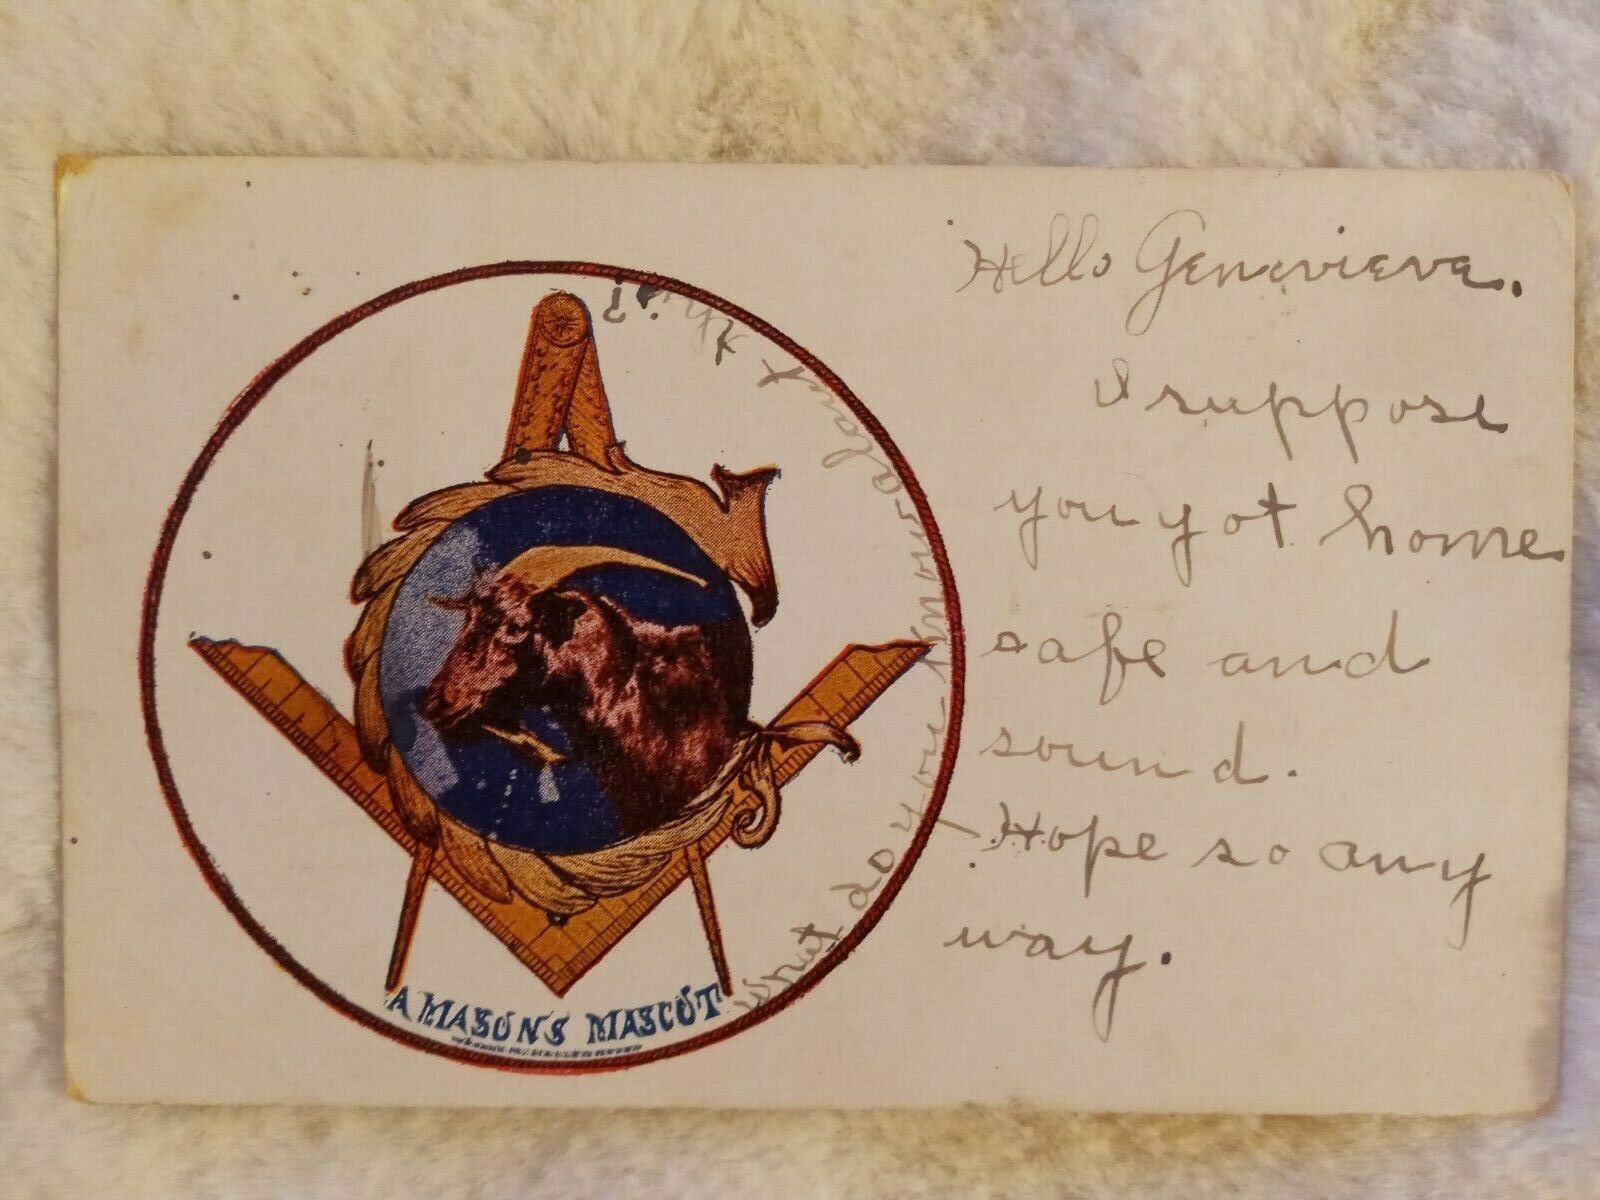 Hello Genevieve.
I suppose
you got home
safe and
sound.
Hope so any
way.
What do you know about this?
A MASON'S MASCOT